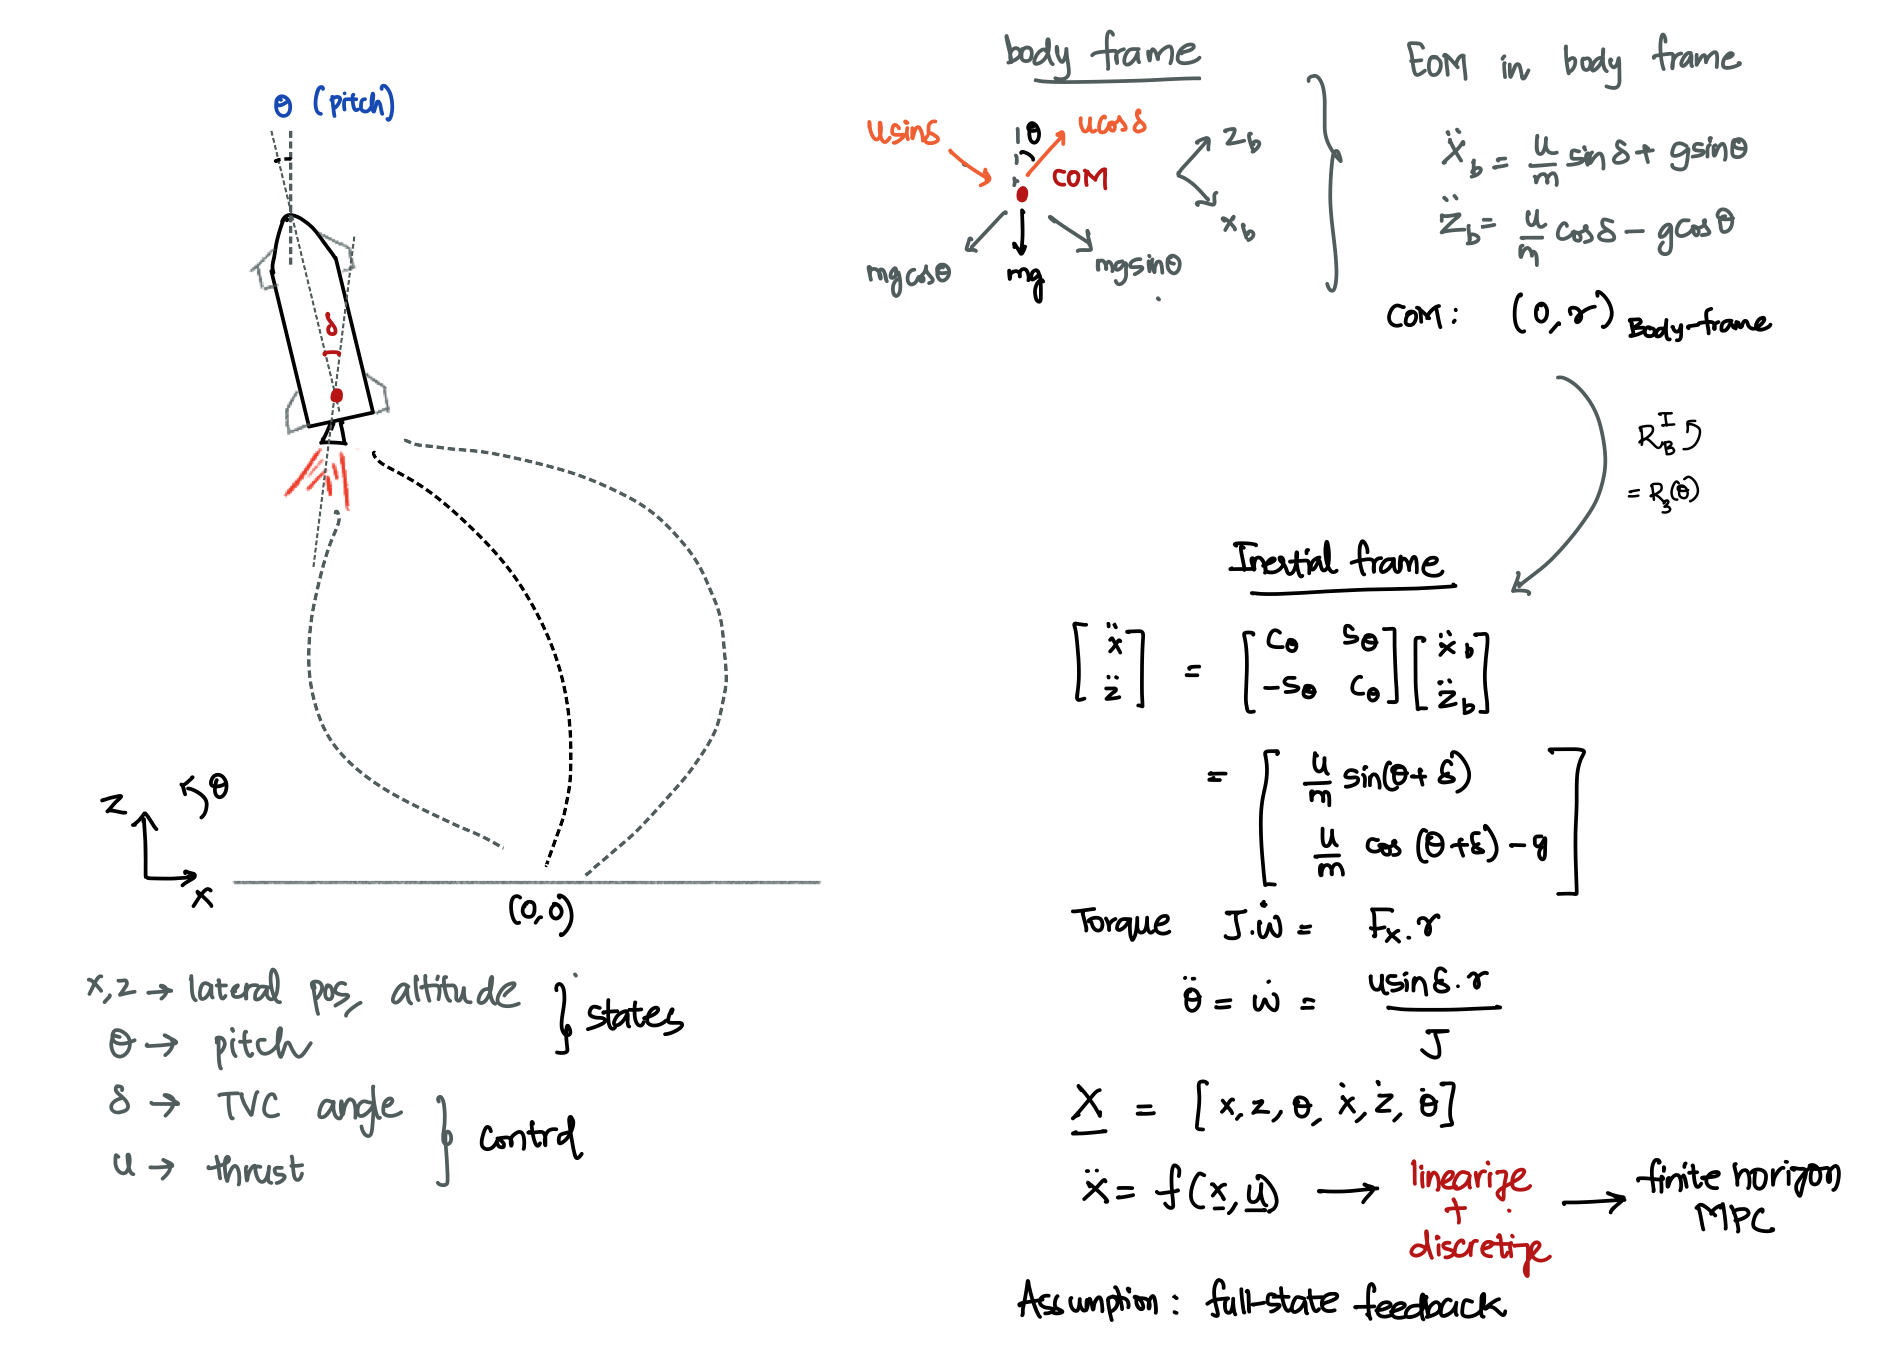 θ (pitch)
δ
z
θ
x
(0,0)
x,z → lateral pos, altitude
θ → pitch
} states
δ → TVC angle
u → thrust
} control
body frame
usinδ
θ
ucosδ
COM
z_b
x_b
mgcosθ
mg
mgsinθ
EOM in body frame
ẍ_b = u/m sinδ + gsinθ
z̈_b = u/m cosδ - gcosθ
COM: (0,r) Body-frame
R_B^I
= R_3(θ)
Inertial frame
[ẍ z̈] = [cθ sθ -sθ cθ] [ẍ_b z̈_b]
= [u/m sin(θ+δ)
u/m cos(θ+δ) - g]
Torque J.ẇ = Fx.r
θ̈ = ẇ = usinδ.r / J
X = [x, z, θ, ẋ, ż, θ̇]
Ẍ = f(x, u) → linearize + discretize → finite horizon MPC
Assumption: full-state feedback